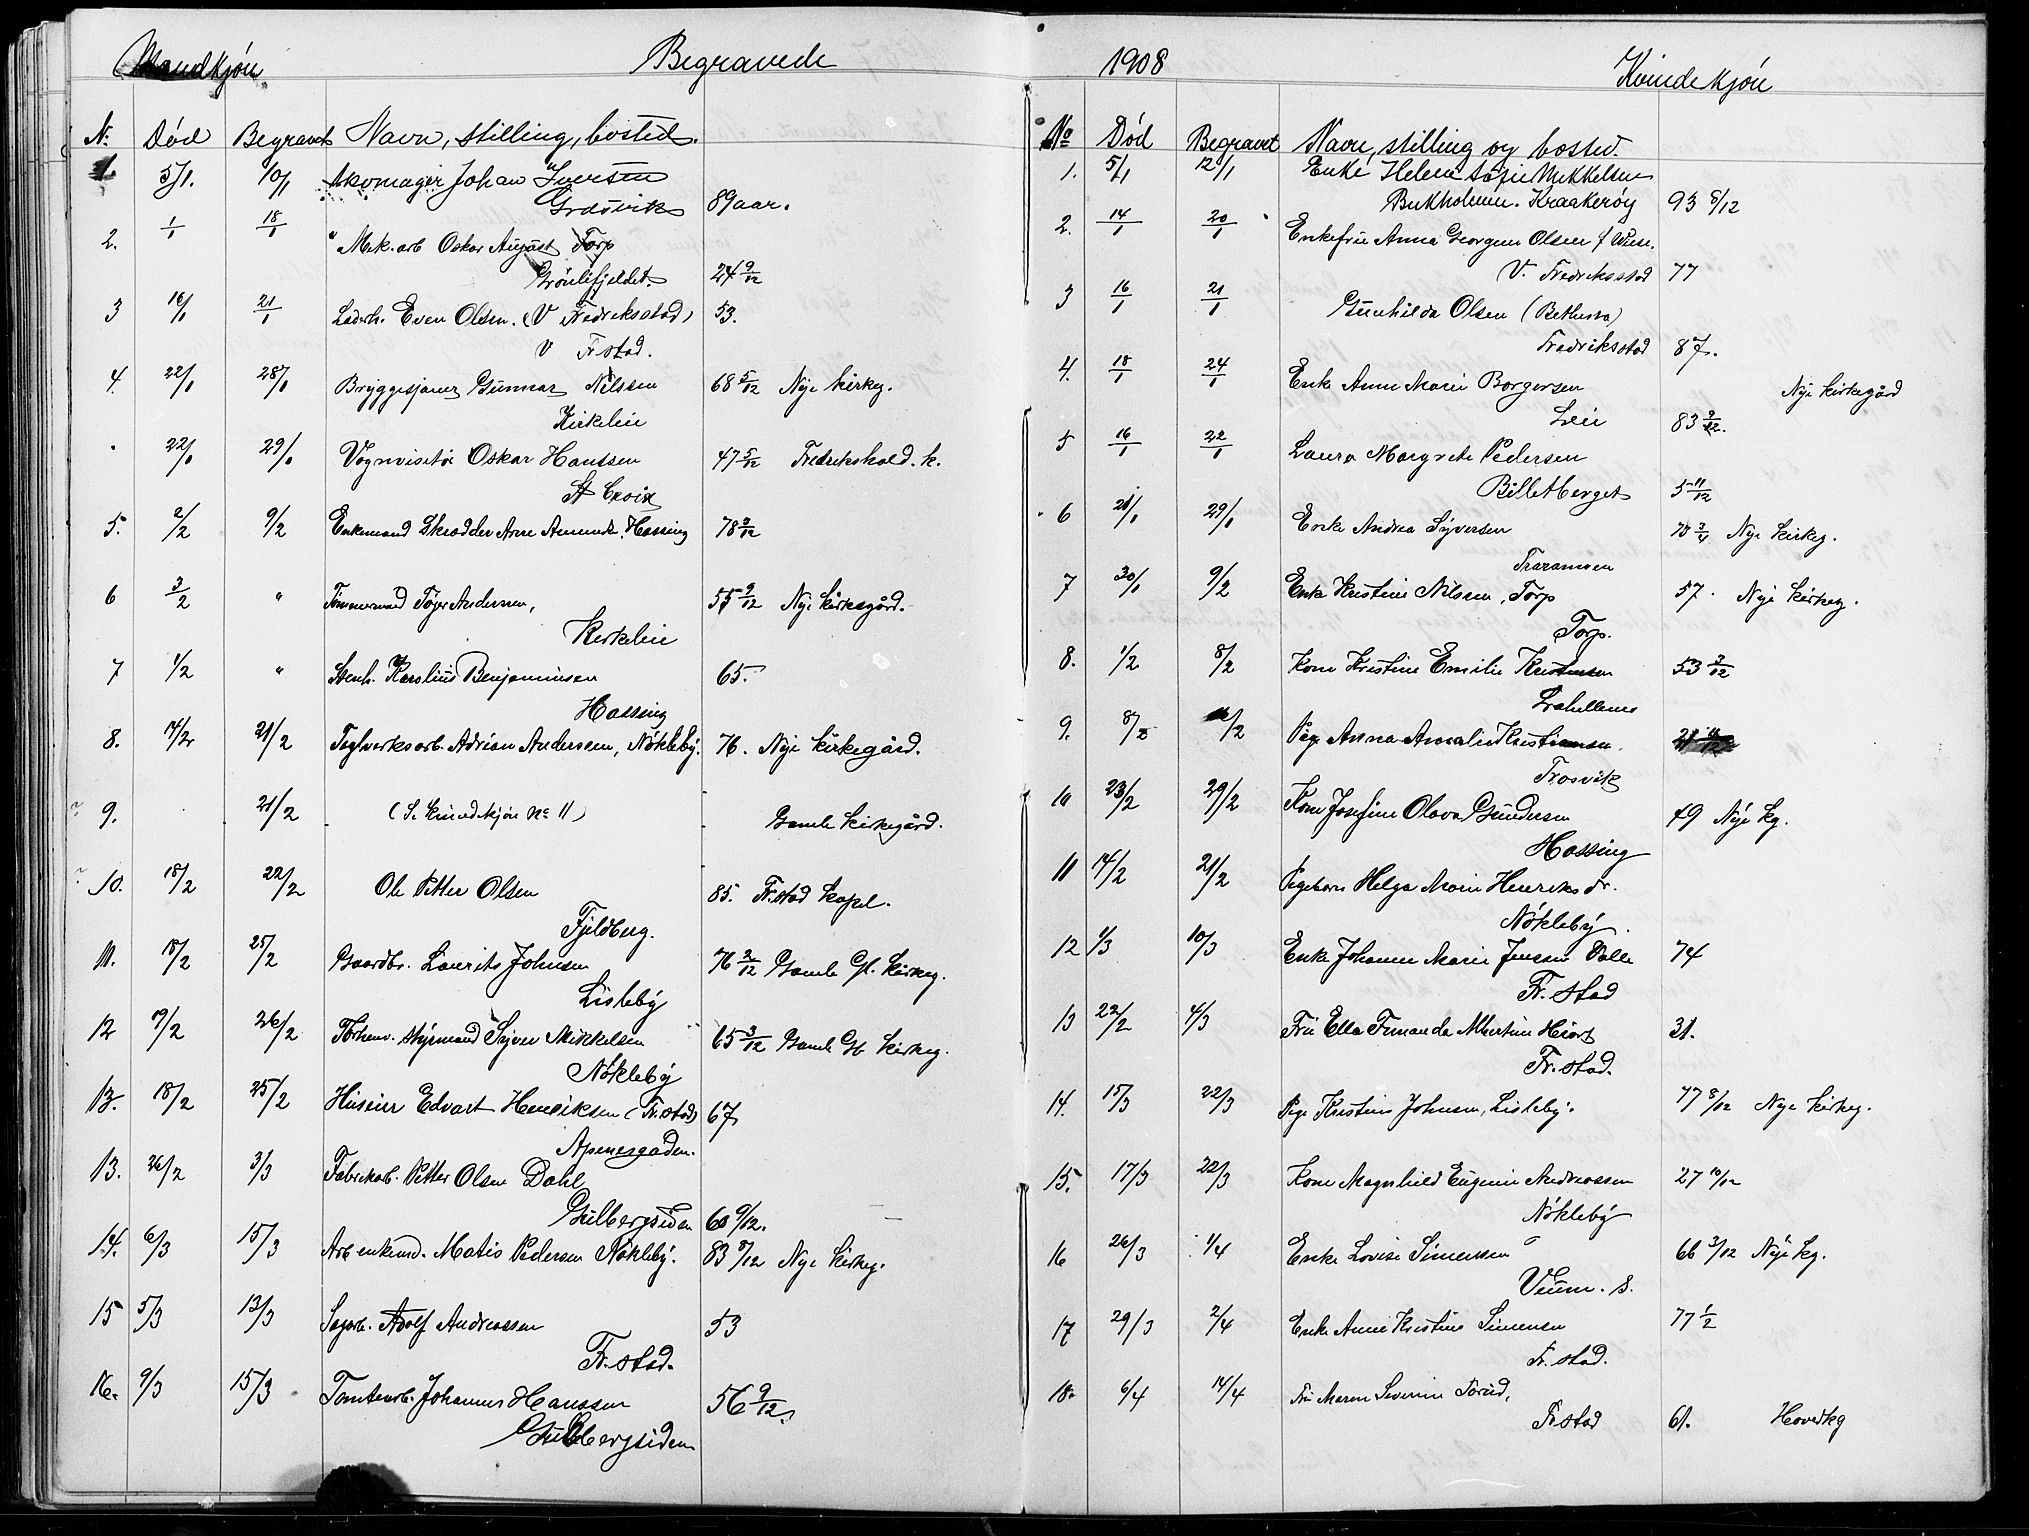 Mandkjøn Begravede
N. Død Begravet Navn, stilling, bosted.
1. 5/1. 10/1 Skomager Johan Iversen
Græsvik 89 aar.
2. 1/1 18/1 Mek. arb Oskar August Torp
Grönlifjeldet. 24 9/12
3 16/1 21/1 Løderh. Even Olsen. (V Fredriksstad) 53.
V Fr.stad.
4. 22/1 28/1 Bryggesjauer Gunnar Nilssen 68 5/12 Nye kirkeg.
Kirkelie
22/1 29/1 Vognvisitør Oskar Hanssen 47 5/12 Fredrikshald. k.
St Croix
5. 2/2 9/2 Enkemand Skrædder Arne Amunds. Hassing 78 3/12
6 3/2 " Tømmermand Tøger Andersen, 55 9/12 Nye kirkegård.
Kirkelie
7 1/2 " Stenh. Karolius Benjaminsen 65.
Hassing
8. 14/2 21/2 Teglverksarb. Adrian Anderssen, Nökleby. 76. Nye Kirkegård.
? 9. 21/2 (Se Kvindekjön No 11) Gamle Kirkegård.
? 10. 18/2 22/2 Ole Petter Olsen 85. Fr.stad kapel.
Fjeldberg.
11. 18/2 25/2 Gaardbr. Laurits Johnsen 76 2/12 Gamle Gl. kirkeg.
Lisleby
12 19/2 26/2 Forhenv. styrmand Syver Mikkelsen 65 3/12 Gamle Gl. kirkeg.
Nökleby
13. 18/2 25/2 Huseier Edvart Henriksen (Fr.stad) 67
Apenesgaden.
13. 26/2 3/3 Fabrikarb. Petter Olsen Dahl
Gulbergsiden 60 9/12.
14. 6/3 15/3 Arb enkemd. Matis Pedersen Nökleby. 83 8/12 Nye Kirkeg.
15 5/3 13/3 Sagarb. Adolf Andreassen 53
Fr.stad.
16. 9/3 15/3 Tomtearb. Johannes Hanssen 56 9/12
Gulbergsiden
1908 Kvindekjøn
No Død Begravet Navn, stilling og bosted.
1. 5/1 12/1 Enke Helene Sofie Mikkelsen
Bukholmen. Kraakeröy 93 8/12
2. 14/1 20/1 Enkefrue Anna Georgine Olsen f Wiese.
V. Fredriksstad 77
3 16/1 21/1 Gunhilda Olsen (Bethania)
Fredriksstad 87.
4. 18/1 24/1 Enke Anne Marie Borgersen Nye kirkegård
Leie 83 9/12.
5 16/1 22/1 Laura Margrete Pedersen
Billetberget 5 11/12
6 21/1 29/1 Enke Andrea Syversen 70 3/4 Nye kirkeg.
Traramsen
7 30/1 9/2 Enke Kristine Nilsen, Torp 57. Nye kirkeg.
Torp.
8. 1/2 8/2 Kone Kristine Emilie Kristensen 53 2/12
Lrahellene
9. 8/2 /2 Pige Anna Amalie Kristiansen.
Trosvik
10 23/2 29/2 Kone Josefine Olava Gundersen 49 Nye kg.
Hassing
11 14/2 21/2 Pigebarn Helga Marie Henriksdr.
Nökleby.
12 1/3 10/3 Enke Johanne Marie Jensen Valle 74
Fr. stad
13 22/2 4/3 Fru Ella Fernanda Albertine Hiort 31.
Fr. stad.
14. 15/3 22/3 Pige Kristine Johnsen, Lisleby. 77 8/12 Nye kirkeg.
15. 17/3 22/3 Kone Magnhild Eugenie Andreassen 27 10/12
Nökleby
16 26/3 1/4 Enke Lovise Simensen 66 3/12 Nye kg.
Veum. s.
17 29/3 2/4 Enke Anne Kristine Simensen 77 1/2
Fr. stad.
18. 6/4 14/4 Fru Maren Severine Torud,
Fr.stad 61. Hovedkg